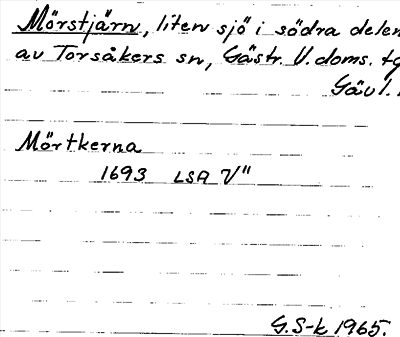 Mörstjärn, liten sjö i södra delen
av Torsåkers sn, Gästr. V. doms. tg
Gävl.
Mörtkerna
1693 LSA V"
G.S-k 1965.